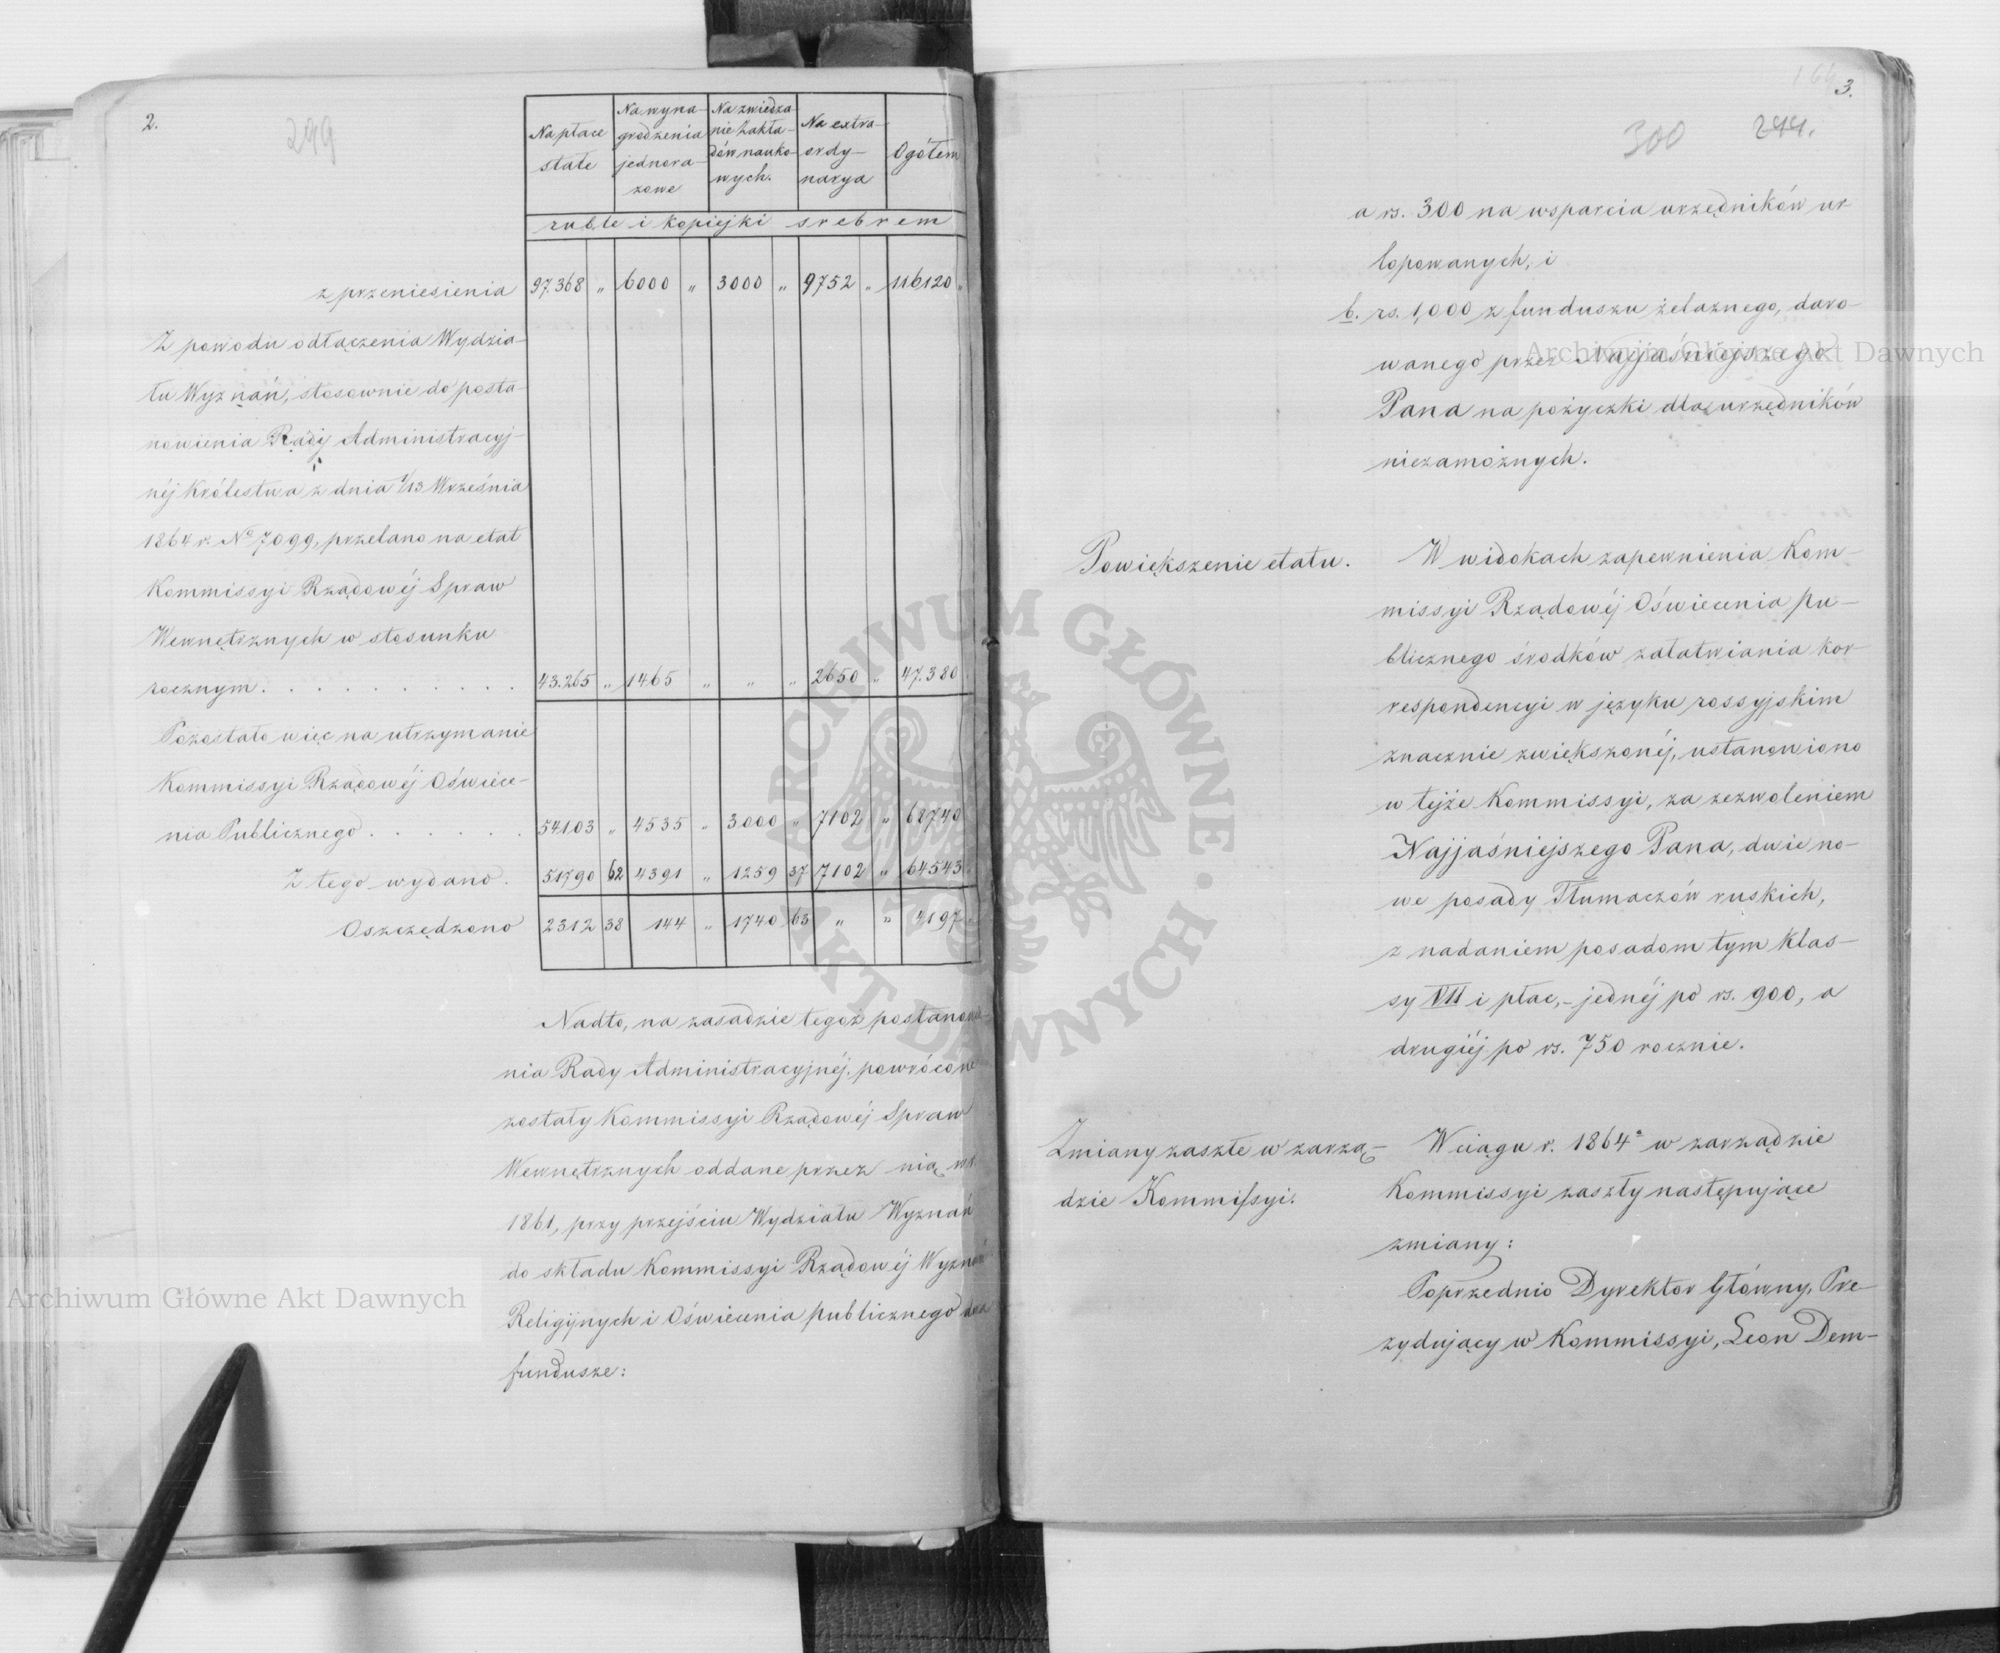 2.
299
Na płace stałe | Na wyna-grodzenia jednora-zowe | Na zwiedza-nie Zakła-dów nauko-wych. | Na extra-ordy-narya | Ogółem
ruble i kopiejki srebrem
z przeniesienia 97.368 „ 6000 „ 3000 „ 9752 „ 116120 „
Z powodu odłączenia Wydzia-
łu Wyznań, stosownie do posta-
nowienia Rady Administracyj-
néj Królestwa z dnia 1/13 Września
1864 r. No 7099, przelano na etat
Kommissyi Rządowéj Spraw
Wewnętrznych w stosunku
rocznym . . . . . . . . . . 43.265 „ 1465 „ „ „ 2650 „ 47.380
Pozostało więc na utrzymanie
Kommissyi Rządowéj Oświece-
nia Publicznego . . . . . . 54103 „ 4535 „ 3000 „ 7102 „ 68740
Z tego wydano . 51790 62 4391 „ 1259 37 7102 „ 64543
Oszczędzono 2312 38 144 „ 1740 63 „ „ 4197
Nadto, na zasadzie tegoż postanowie-
nia Rady Administracyjnéj, powrócone
zostały Kommissyi Rządowéj Spraw
Wewnętrznych oddane przez nią w r.
1861, przy przejściu Wydziału Wyznań
do składu Kommissyi Rządowéj Wyznań
Religijnych i Oświecenia publicznego dwa
fundusze:
3.
300 299.
a rs. 300 na wsparcia urzędników ur
lopowanych, i
b. rs. 1,000 z funduszu żelaznego, daro-
wanego przez Najjaśniejszego
Pana na pożyczki dla urzędników
niezamożnych.
Powiększenie etatu.
W widokach zapewnienia Kom-
missyi Rządowéj Oświecenia pu-
blicznego środków załatwiania kor
respondencyi w języku rossyjskim
znacznie zwiększonéj, ustanowiono
w tejże Kommissyi, za zezwoleniem
Najjaśniejszego Pana, dwie no-
we posady Tłumaczów ruskich,
z nadaniem posadom tym klas-
sy VII i płac, - jednéj po rs. 900, a
drugiéj po rs. 750 rocznie.
Zmiany zaszłe w zarzą-
dzie Kommissyi.
W ciągu r. 1864o w zarządzie
Kommissyi zaszły następujące
zmiany:
Poprzednio Dyrektor Główny, Pre-
zydujący w Kommissyi, Leon Dem-
Archiwum Główne Akt Dawnych
Archiwum Główne Akt Dawnych
ARCHIWUM GŁÓWNE AKT DAWNYCH